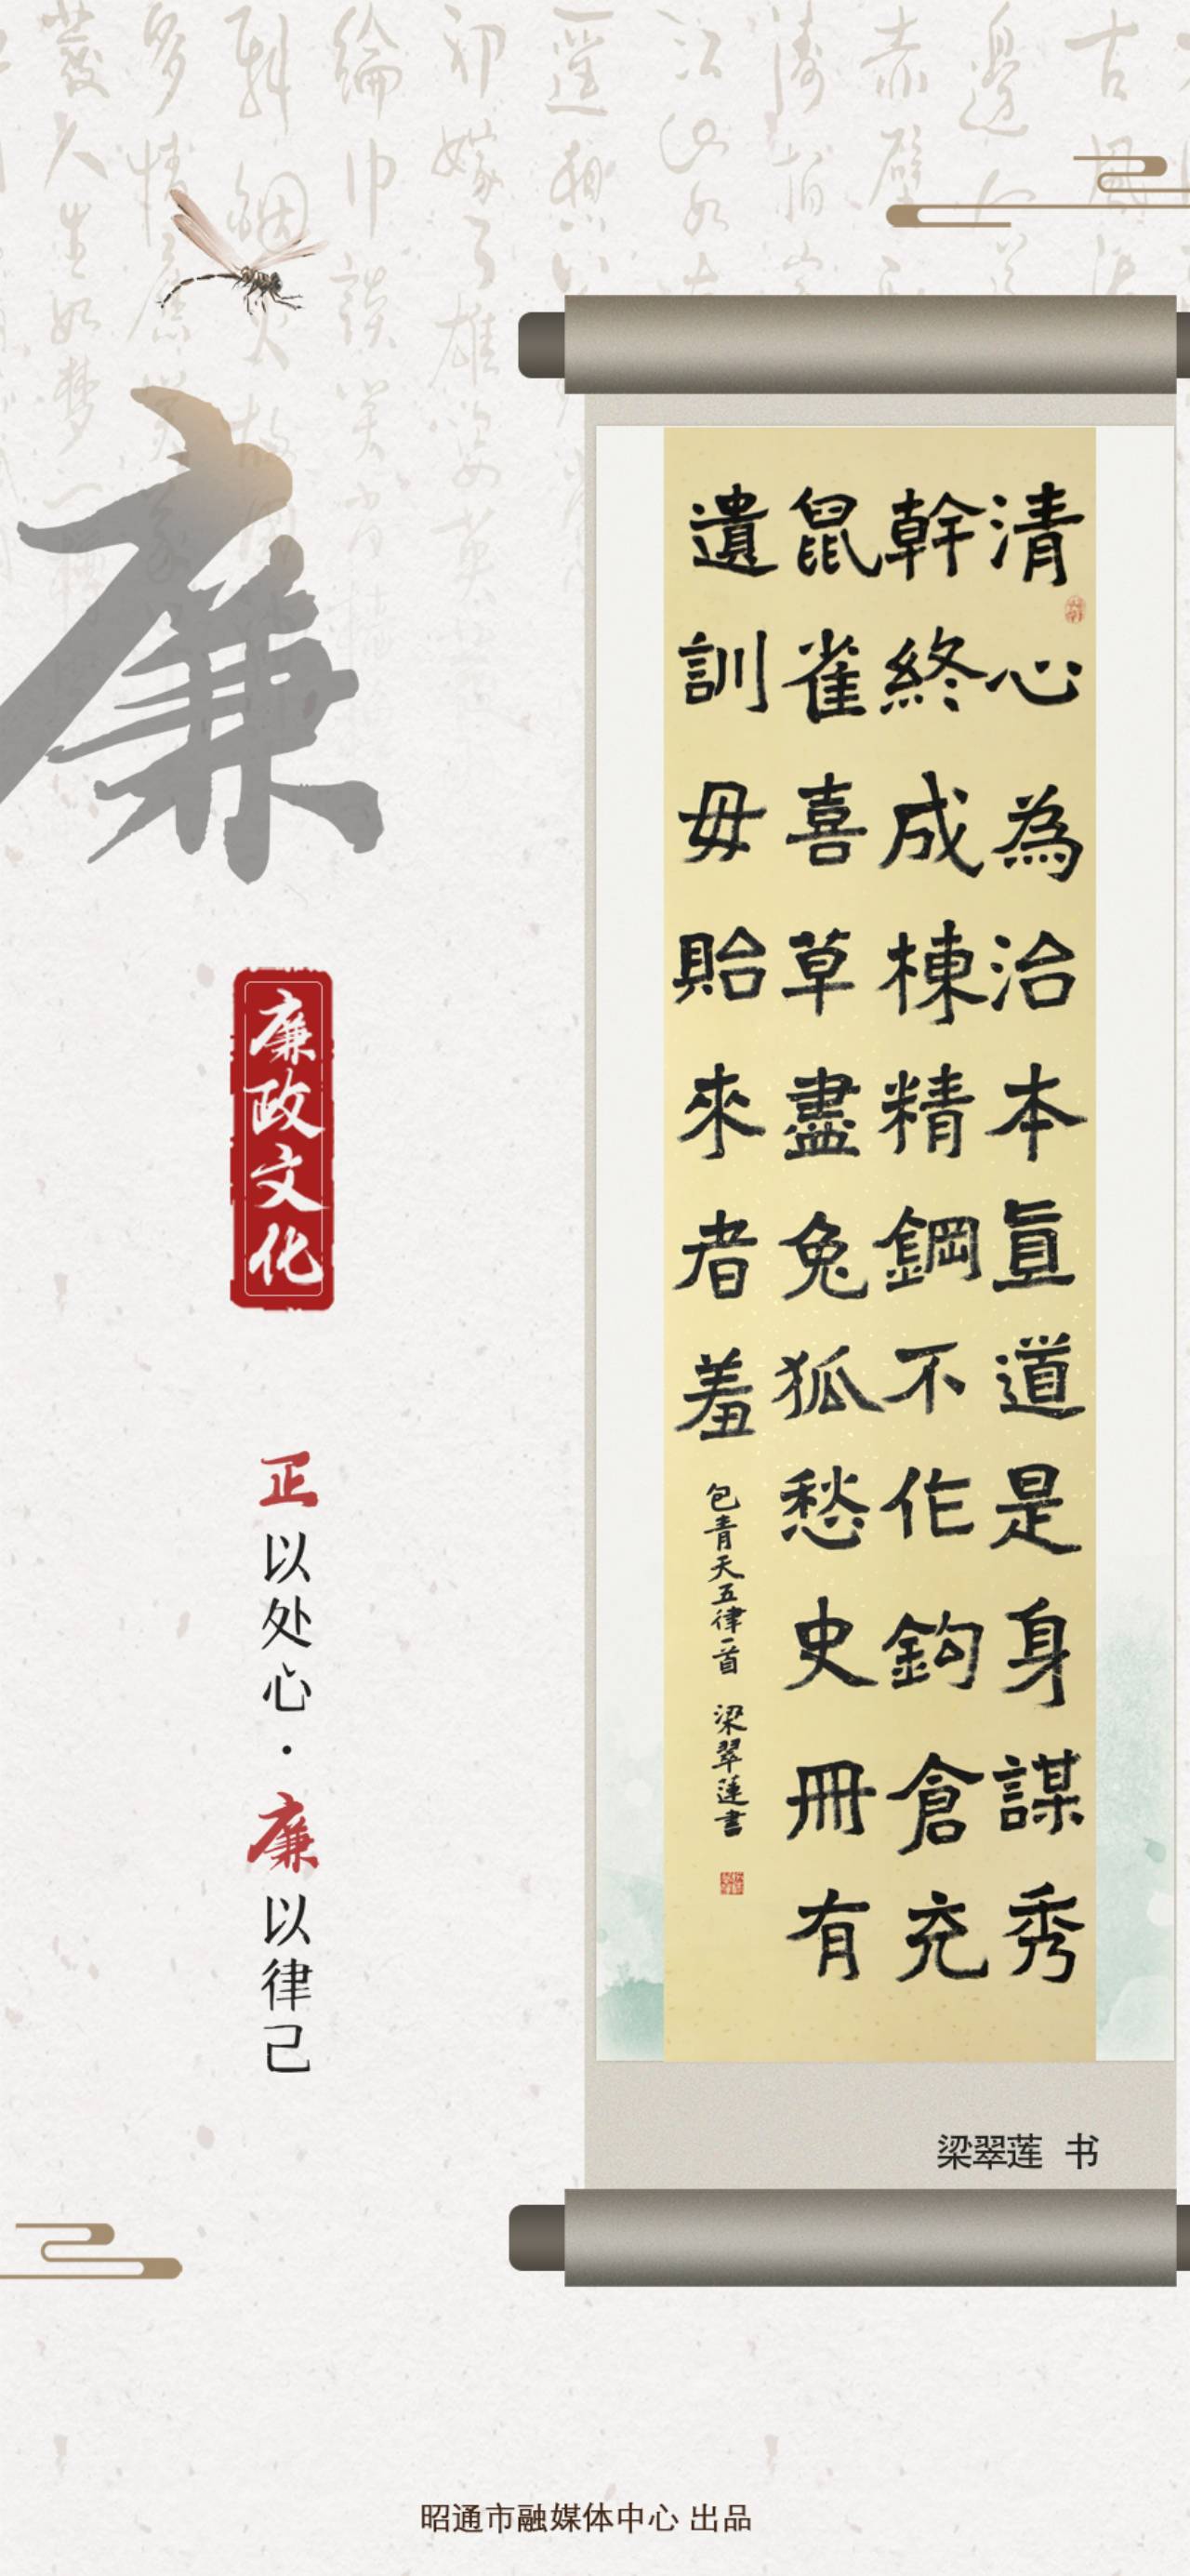 廉
廉政文化
正以处心·廉以律己
清心為治本直道是身謀秀
幹終成棟精鋼不作鉤倉充
鼠雀喜草盡兔狐愁史冊有
遺訓毋貽來者羞
包青天五律一首 梁翠蓮書
梁翠莲 书
昭通市融媒体中心 出品